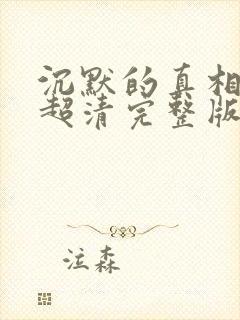 沉默的真相
超清完整版
泣森